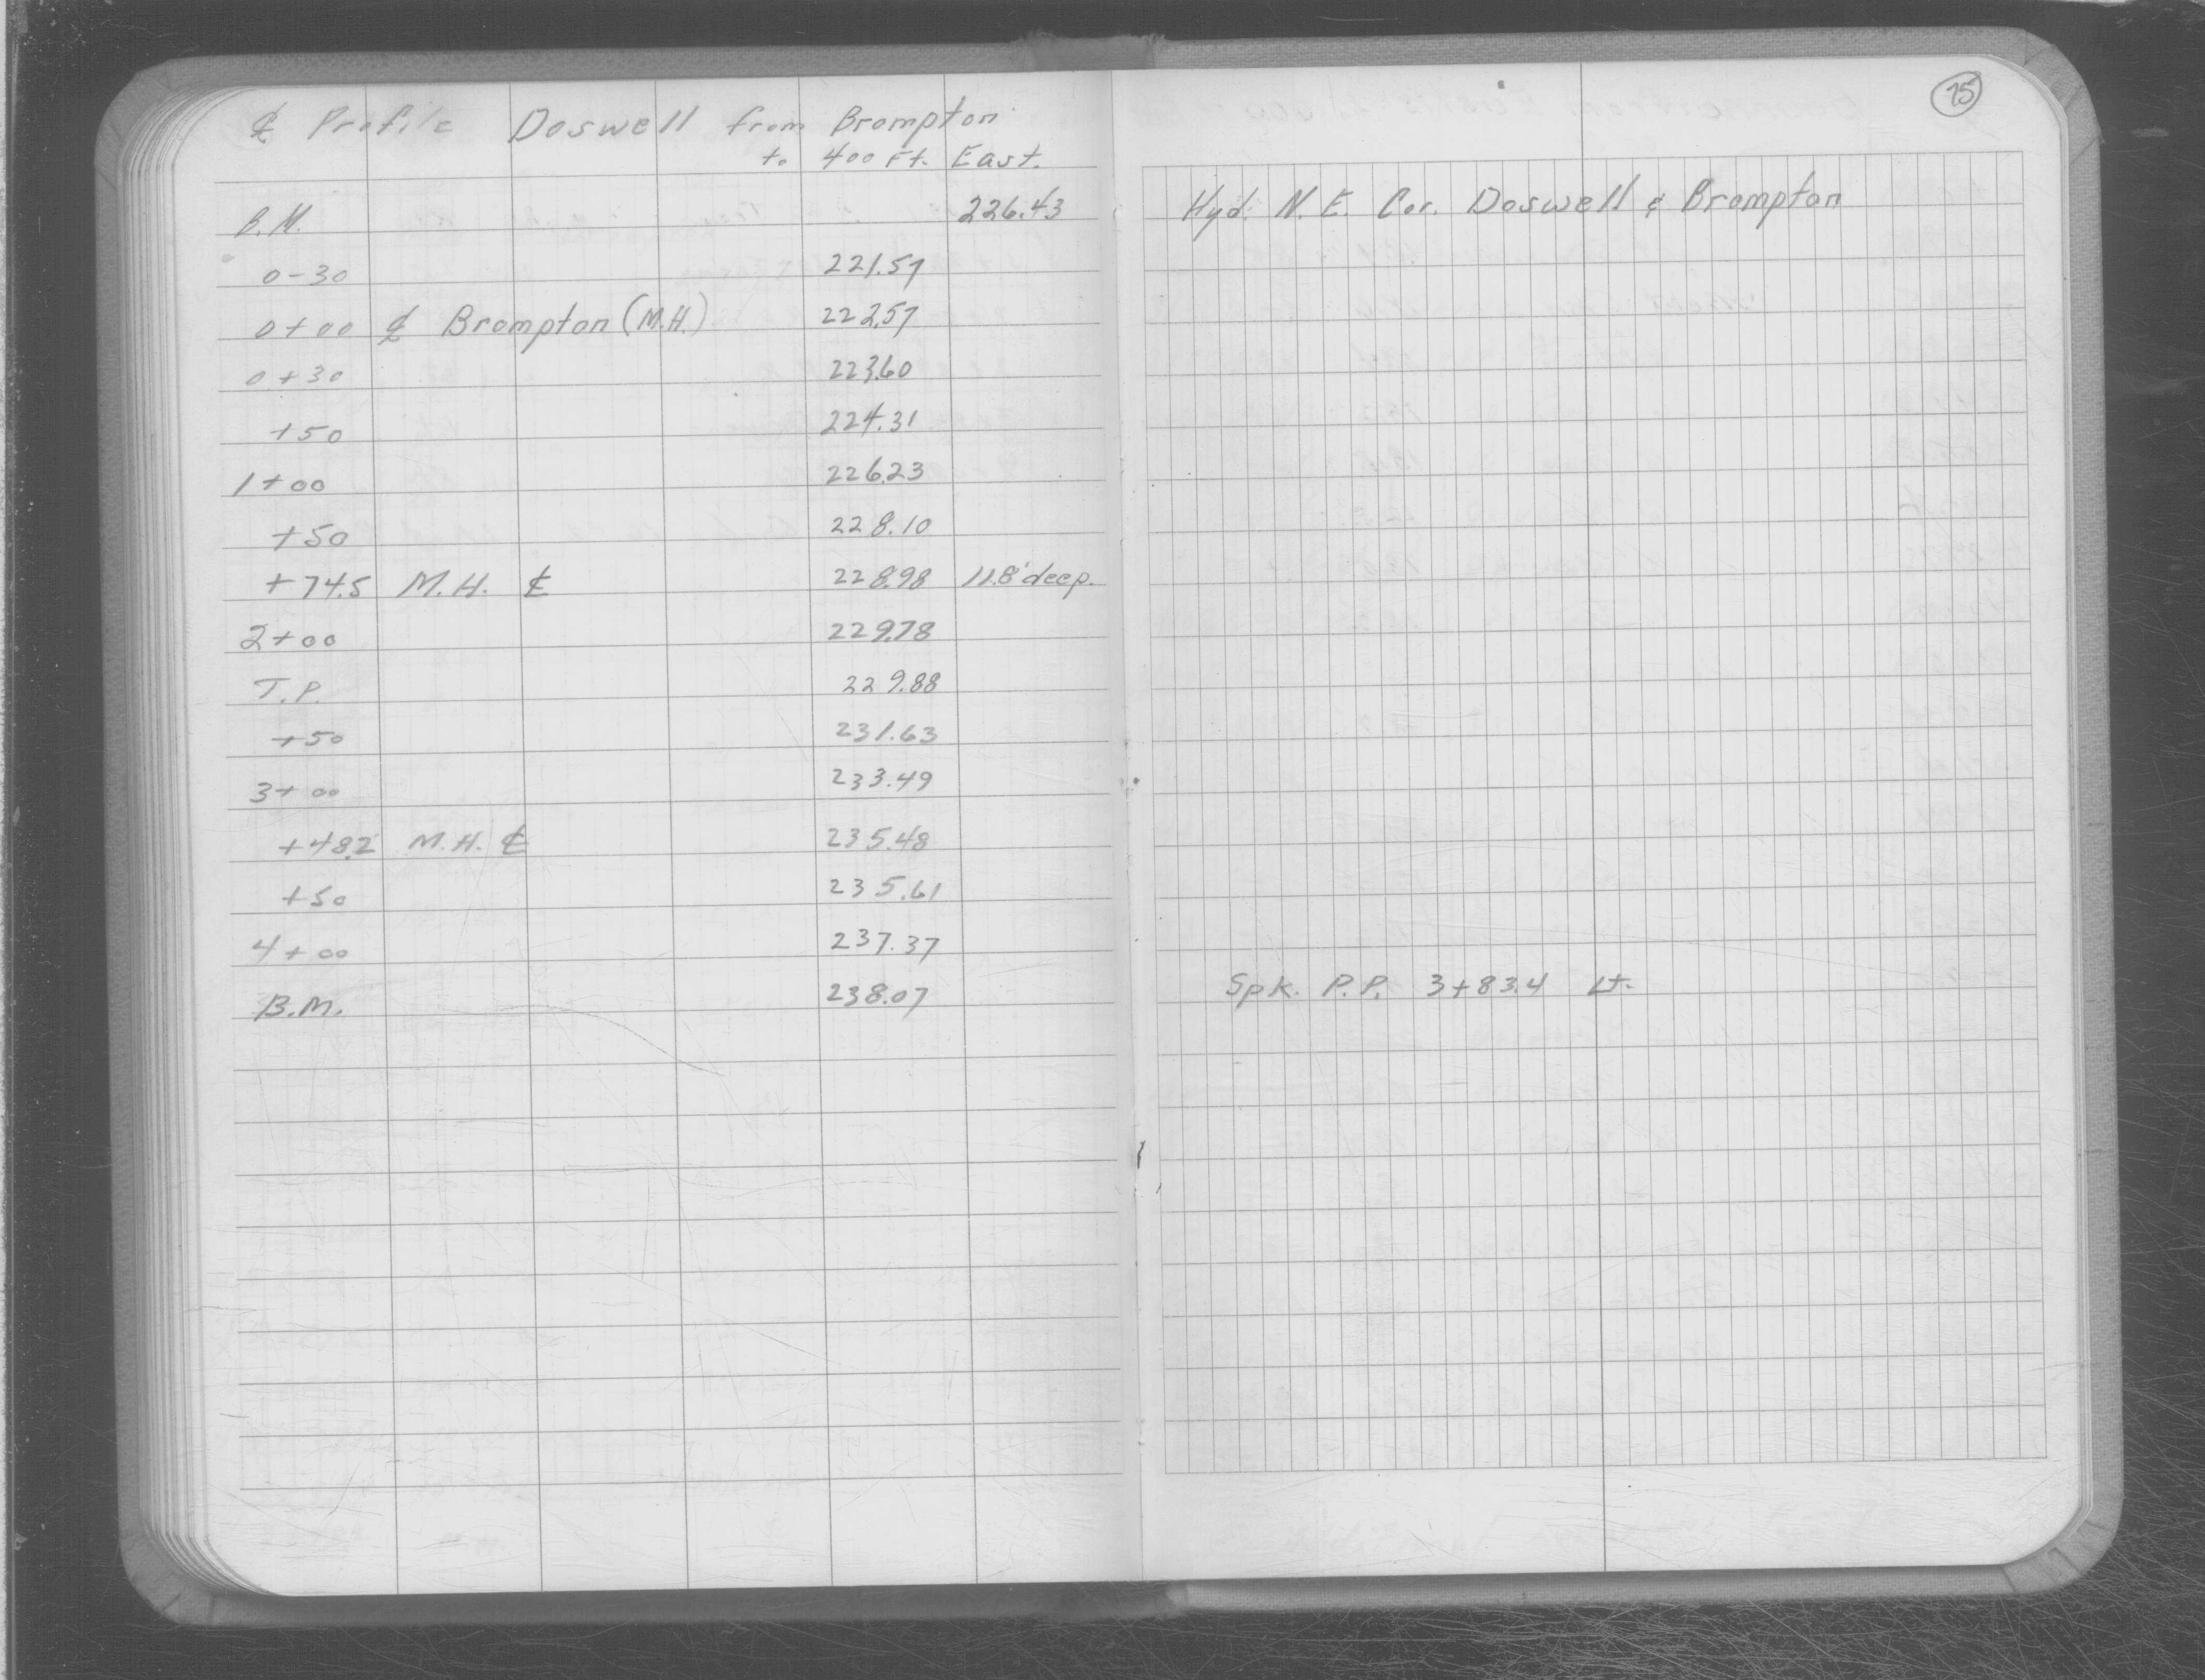 15
℄ Profile Doswell from Brompton
to 400 Ft. East.
B.M. 226.43 Hyd. N.E. Cor. Doswell & Brompton
0-30 221.57
0+00 ℄ Brompton (M.H.) 222.57
0+30 223.60
+50 224.31
1+00 226.23
+50 228.10
+74.5 M.H. ℄ 228.98 11.8' deep.
2+00 229.78
T.P. 229.88
+50 231.63
3+00 233.49
+48.2 M.H. ℄ 235.48
+50 235.61
4+00 237.37
B.M. 238.07 Spk. P.P. 3+83.4 Lt.